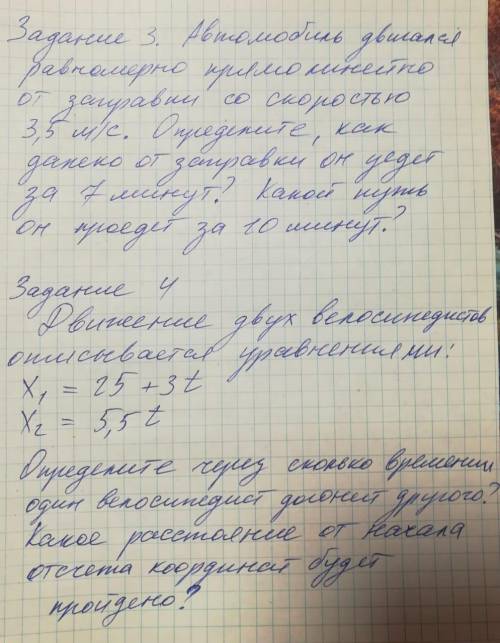 Задание 3. Автомобиль двигался
равномерно прямолинейно
от заправки со скоростью
3,5 м/с. Определите, как
далеко от заправки он уедет
за 7 минут? Какой путь
он проедет за 10 минут?
Задание 4
Движение двух велосипедистов
описывается уравнениями:
X₁ = 25 + 3t
X₂ = 5,5t
Определите через сколько времени
один велосипедист догонит другого?
Какое расстояние от начала
отсчета координат будет
пройдено?